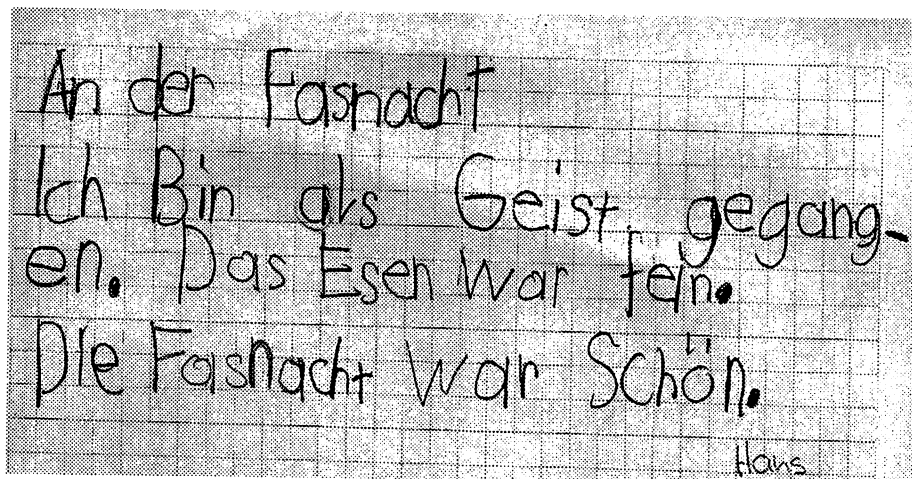 An der Fasnacht
Ich Bin als Geist gegang-
en. Das Esen War fein.
DIe Fasnacht War Schön.
Hans